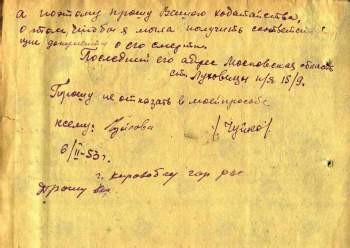 а поэтому прошу Вашего ходатайства,
о том, чтобы я могла получить соответств
щие документы о его смерти.
Последний его адрес Московская область
ст. Луховицы п/я 15/9.
Прошу не отказать в моей просьбе
к сему:
/Чуйко/
6/II-53г.
г. Кировобад гор
Прошу